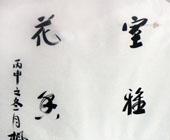 室雅
花香
丙申之冬月